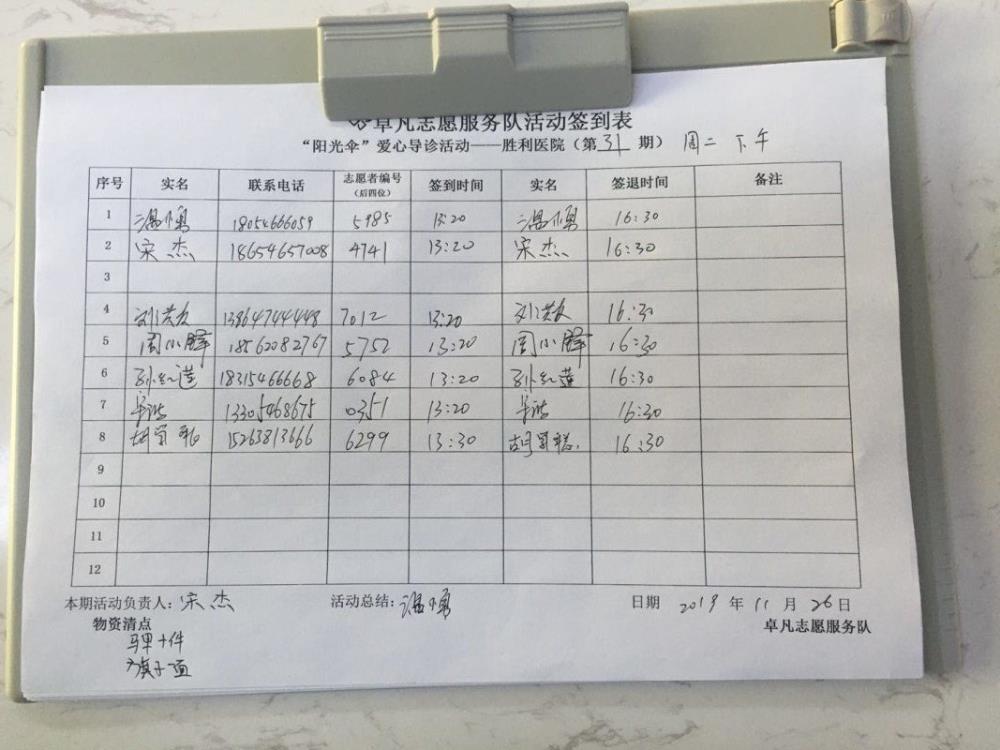 卓凡志愿服务队活动签到表
“阳光伞”爱心导诊活动——胜利医院（第31期） 周二 下午
序号 实名 联系电话 志愿者编号（后四位） 签到时间 实名 签退时间 备注
1 18054666059 5985 13:20 16:30
2 宋杰 18654657008 4741 13:20 宋杰 16:30
3
4 13864744448 7012 13:20 16:30
5 周小 18562082767 5752 13:20 周小 16:30
6 孙红莲 18315466668 6084 13:20 孙红莲 16:30
7 13305468675 0351 13:20 16:30
8 胡 15263813666 6299 13:30 胡 16:30
9
10
11
12
本期活动负责人：宋杰 活动总结： 日期 2019年11月26日
物资清点 卓凡志愿服务队
马甲十件
旗子一面